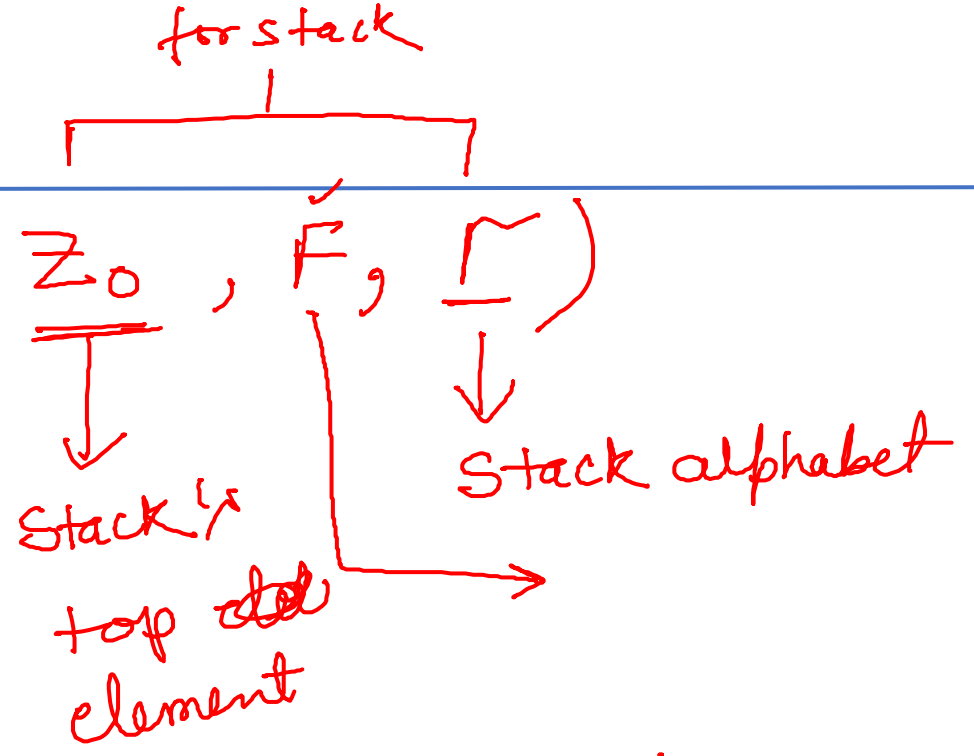 for stack
Z₀ , F, Γ )
stack alphabet
stack's
top
element